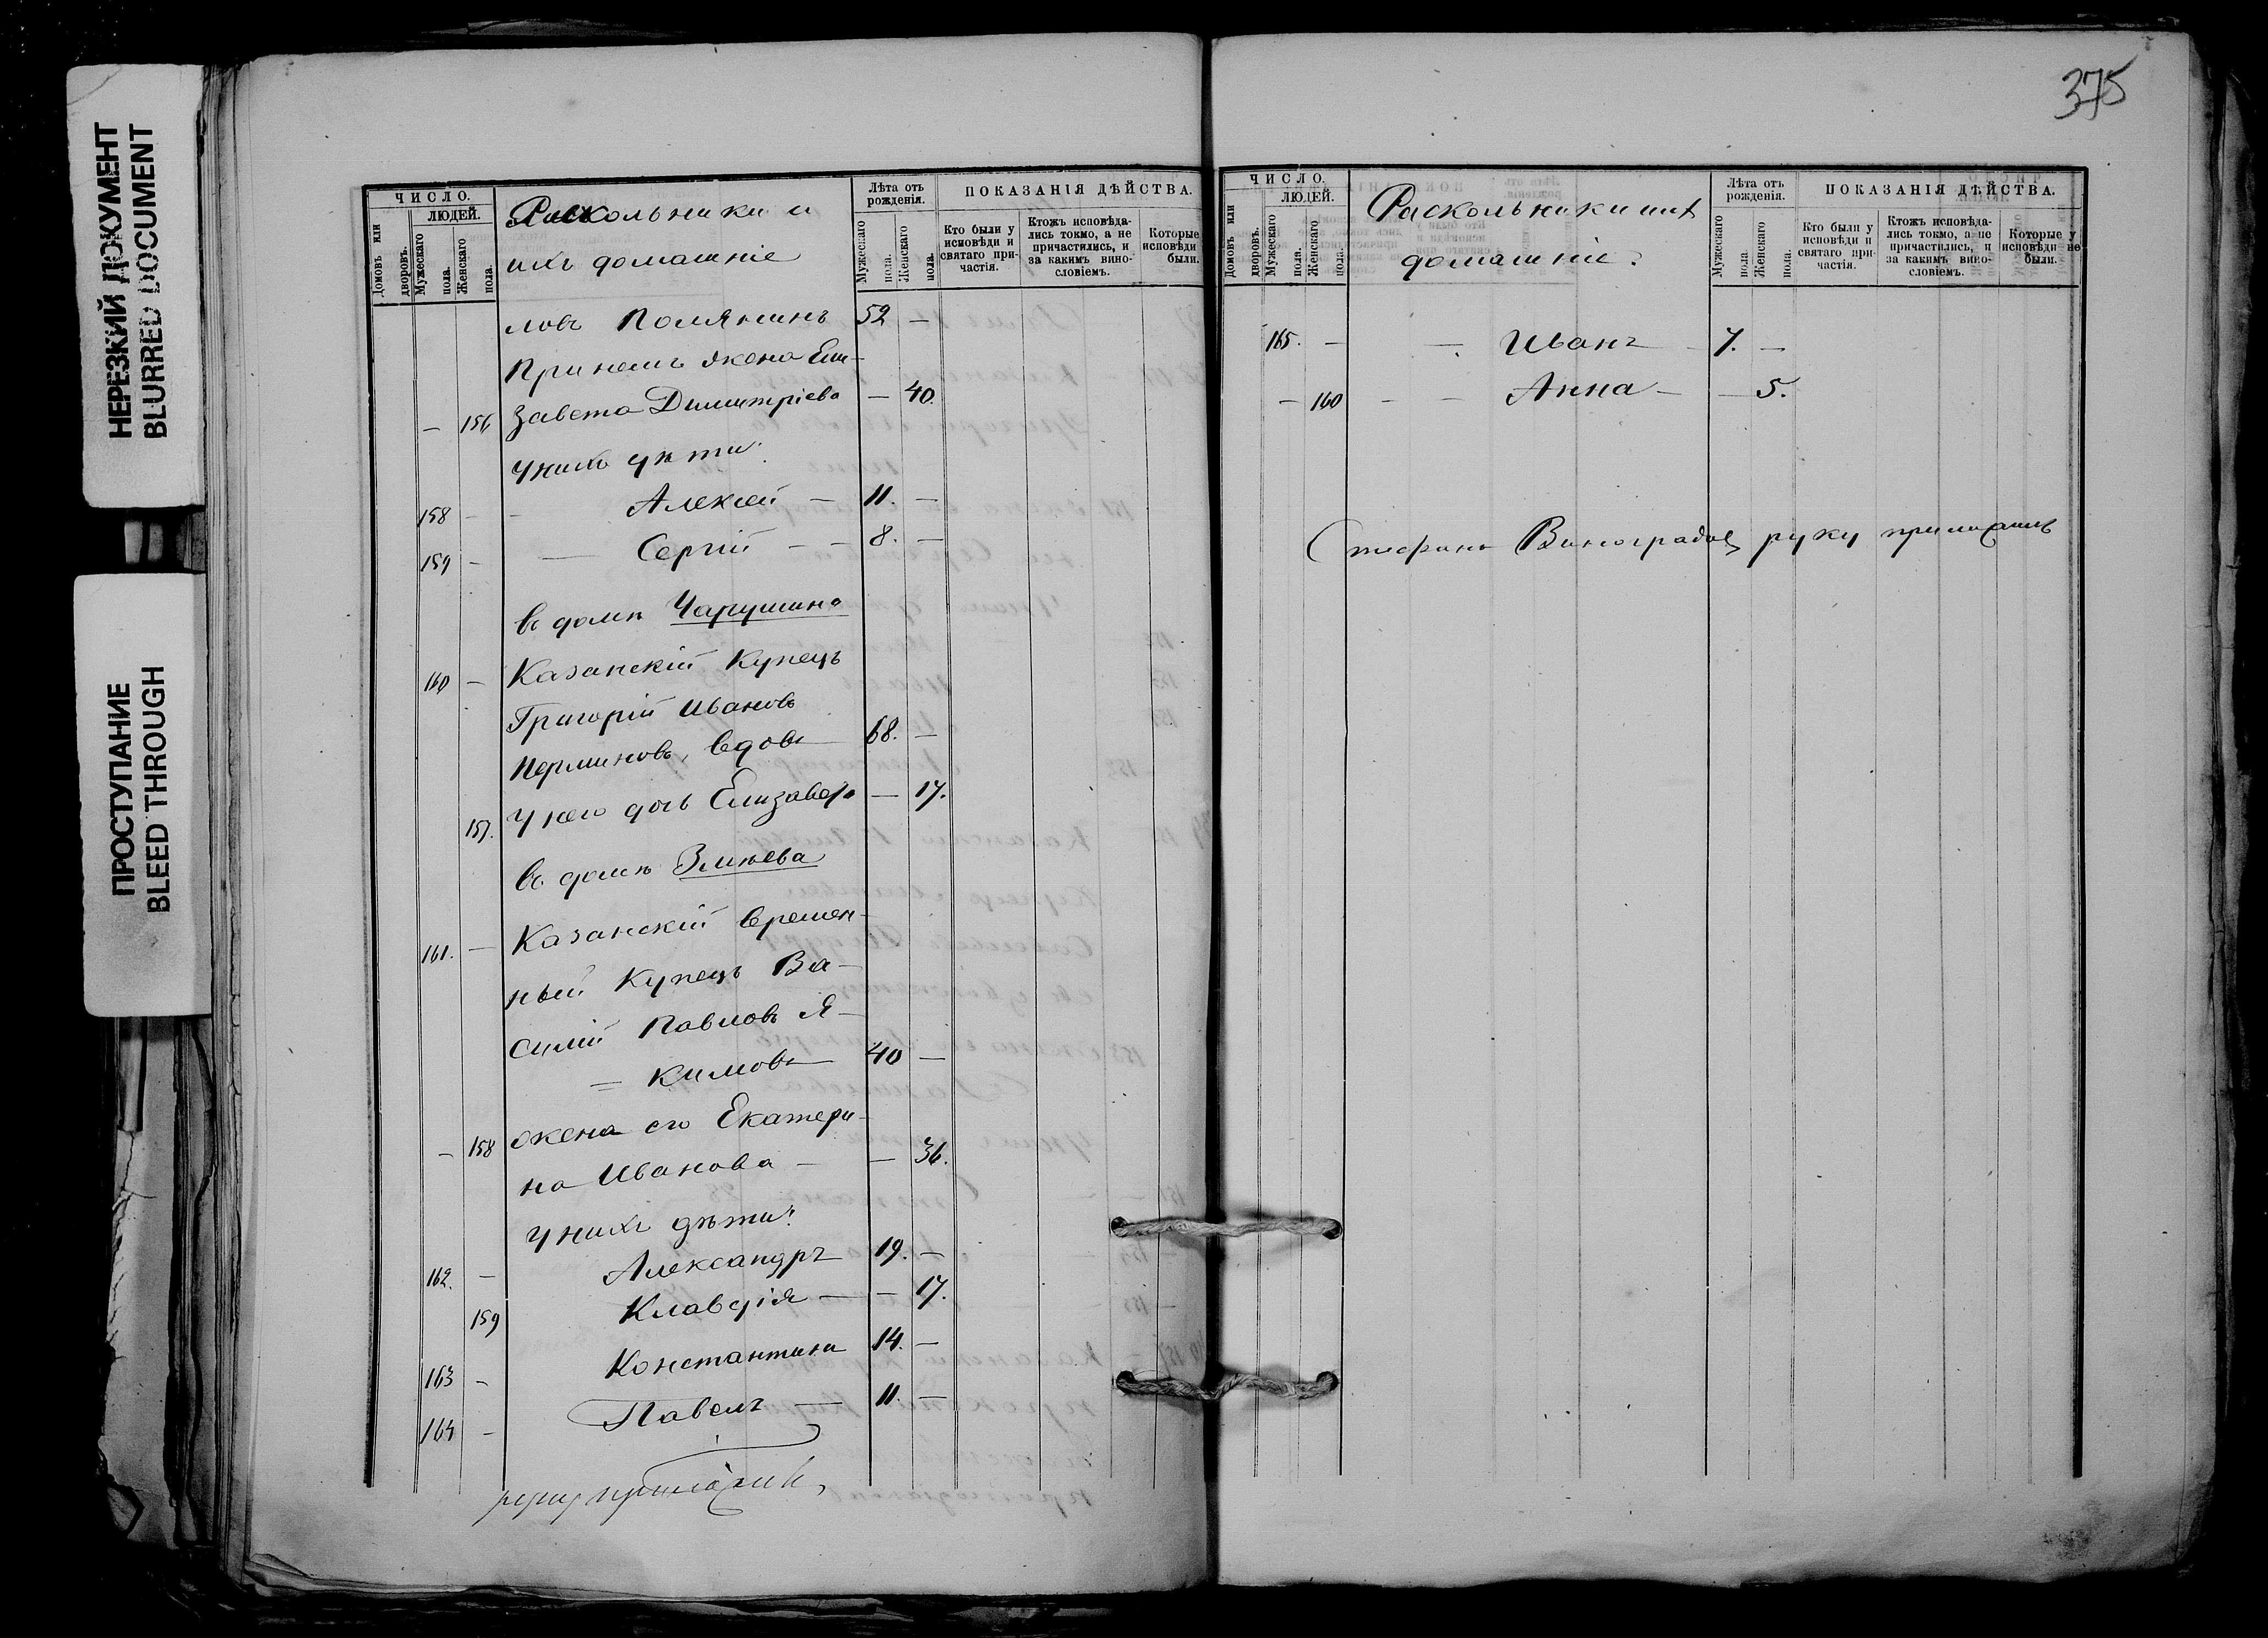 НЕРЕЗКИЙ ДОКУМЕНТ
BLURRED DOCUMENT
ПРОСТУПАНИЕ
BLEED THROUGH
ЧИСЛО.
ЛЮДЕЙ.
Домовъ или дворовъ.
Мужескаго пола.
Женскаго пола.
Раскольники и
ихъ домашніе
Лѣта отъ рожденія.
Мужескаго пола.
Женскаго пола.
ПОКАЗАНІЯ ДѢЙСТВА.
Кто были у исповѣди и святаго при-
частія.
Ктожъ исповѣда-
лись токмо, а не причастились, и за какимъ вино-
словіемъ.
Которые исповѣди были.
ловъ Полянинъ 52 —
При немъ жена Ели-
— 156 завета Димитріева — 40.
У нихъ дѣти:
158 — — Алексей — 11. —
159 — — Сергій — — 8. —
въ домѣ Чарушина
160 — Казанскій Купецъ
Григорій Ивановъ
Перминовъ, вдовъ 68. —
157. У него дочь Елизавета — 17.
въ домѣ Змѣева
161. — Казанскій времен-
ный Купецъ Ва-
силій Павловъ Я-
= кимовъ 40 —
— 158 жена его Екатери-
на Иванова — — 36.
У нихъ дѣти:
162. — Александръ 19. —
159 Клавдія — — 17.
163 — Константинъ 14. —
164 — Павелъ — 11. —
руку приложилъ
375
ЧИСЛО.
ЛЮДЕЙ.
Домовъ или дворовъ.
Мужескаго пола.
Женскаго пола.
Раскольники ихъ
домашніе.
Лѣта отъ рожденія.
Мужескаго пола.
Женскаго пола.
ПОКАЗАНІЯ ДѢЙСТВА.
Кто были у исповѣди и святаго при-
частія.
Ктожъ исповѣда-
лись токмо, а не причастились, и за какимъ вино-
словіемъ.
Которые у исповѣди не были.
165. — — Иванъ — 7. —
— 160 — — Анна — — 5.
Стефанъ Виноградовъ руку приложилъ